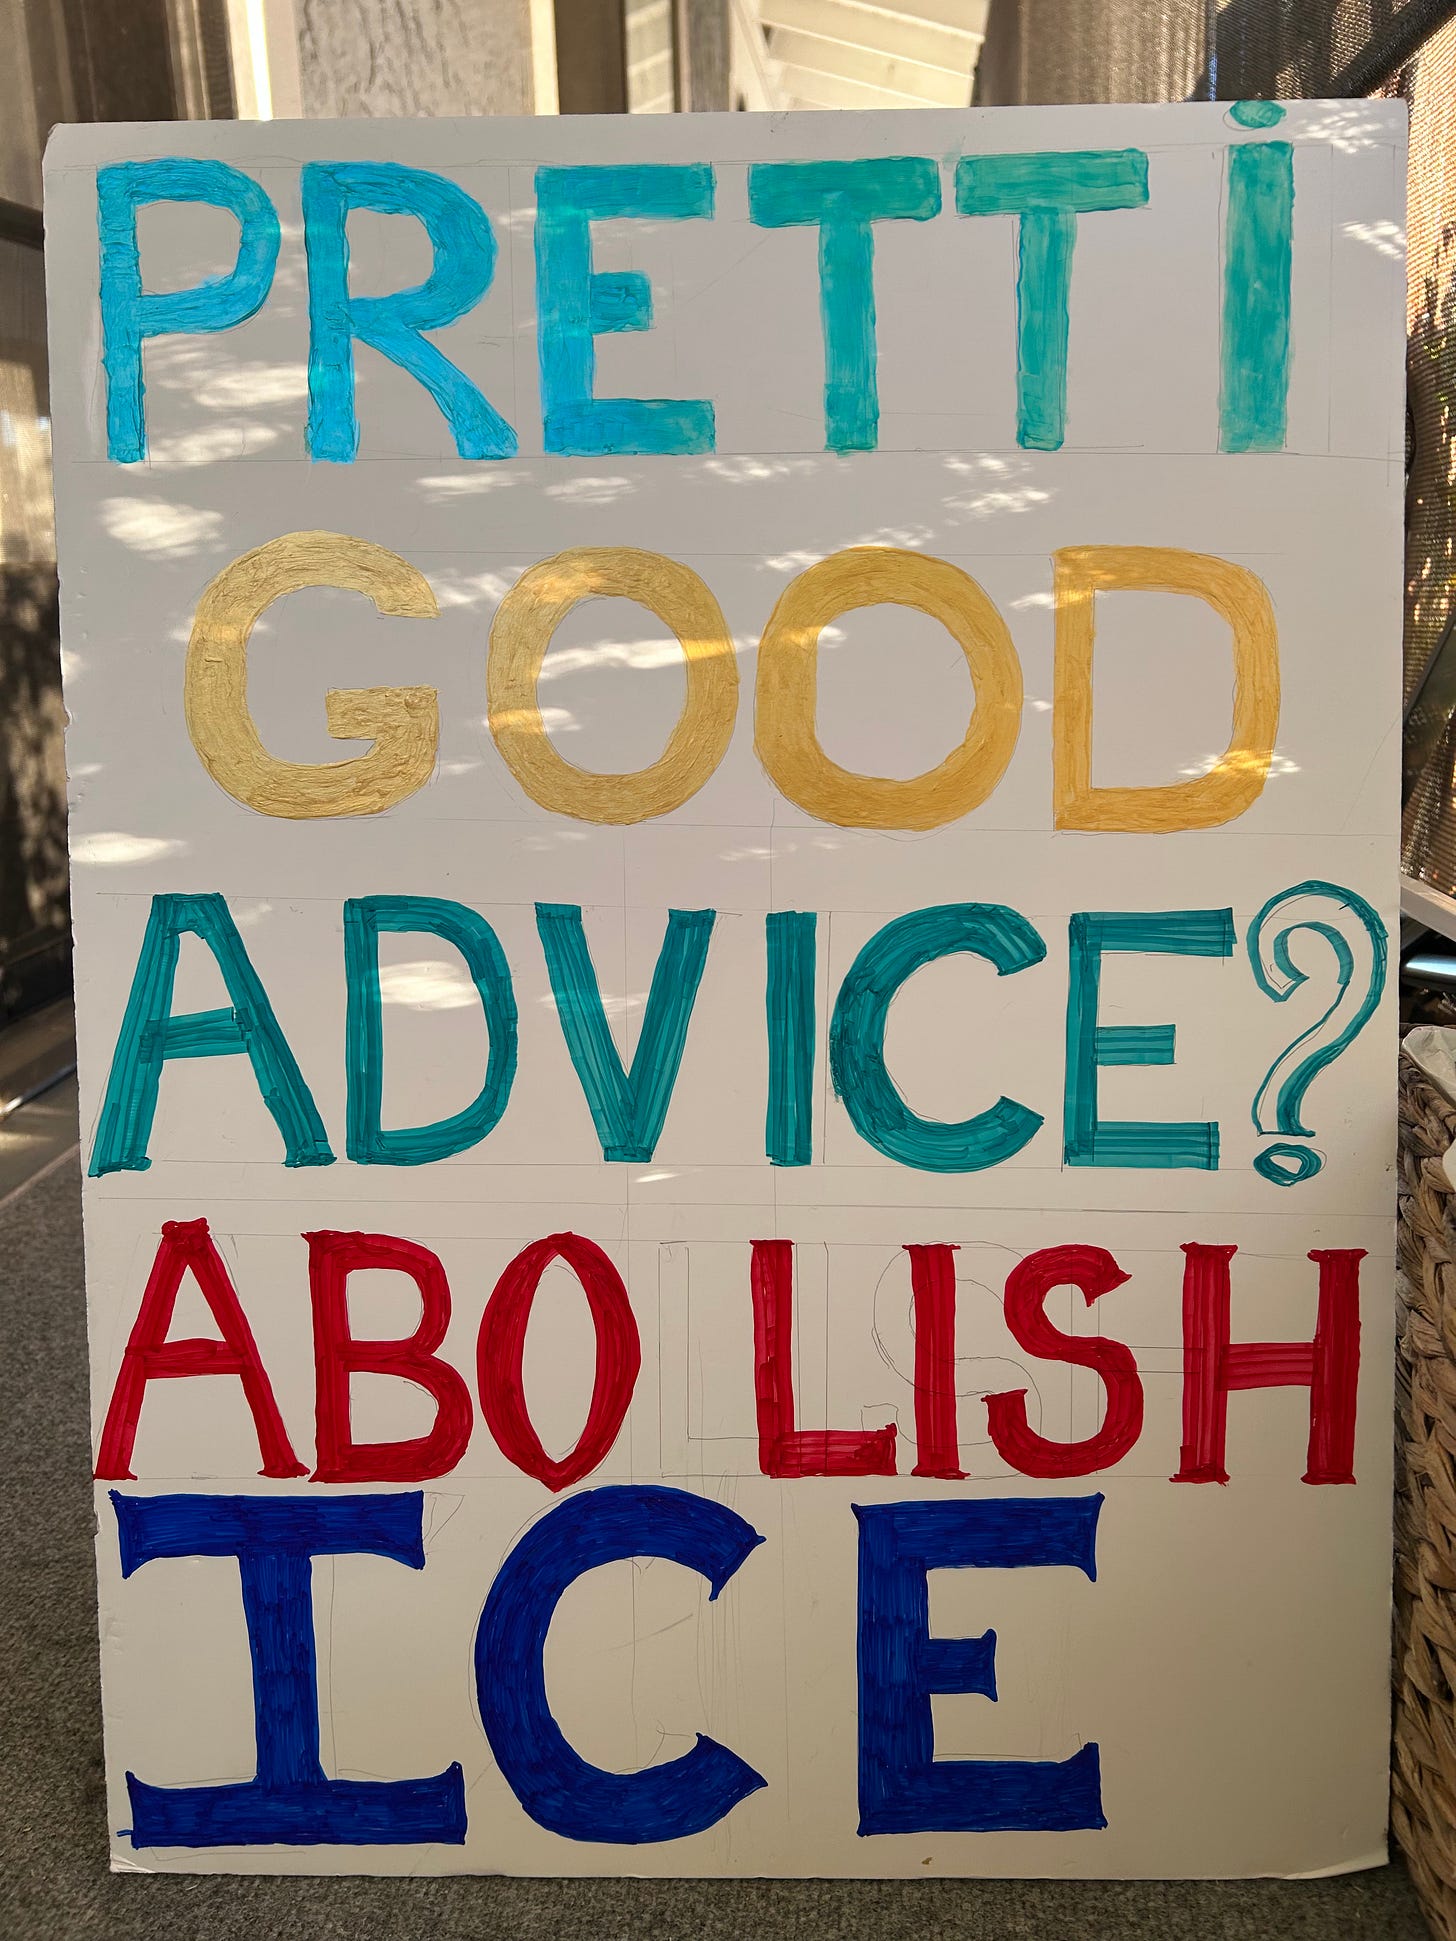 PRETTi
GOOD
ADVICE?
ABOLISH
ICE